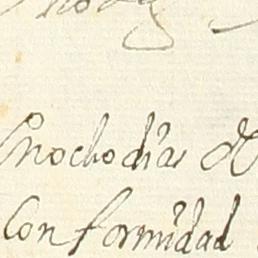 En ocho dias de
Conformidad